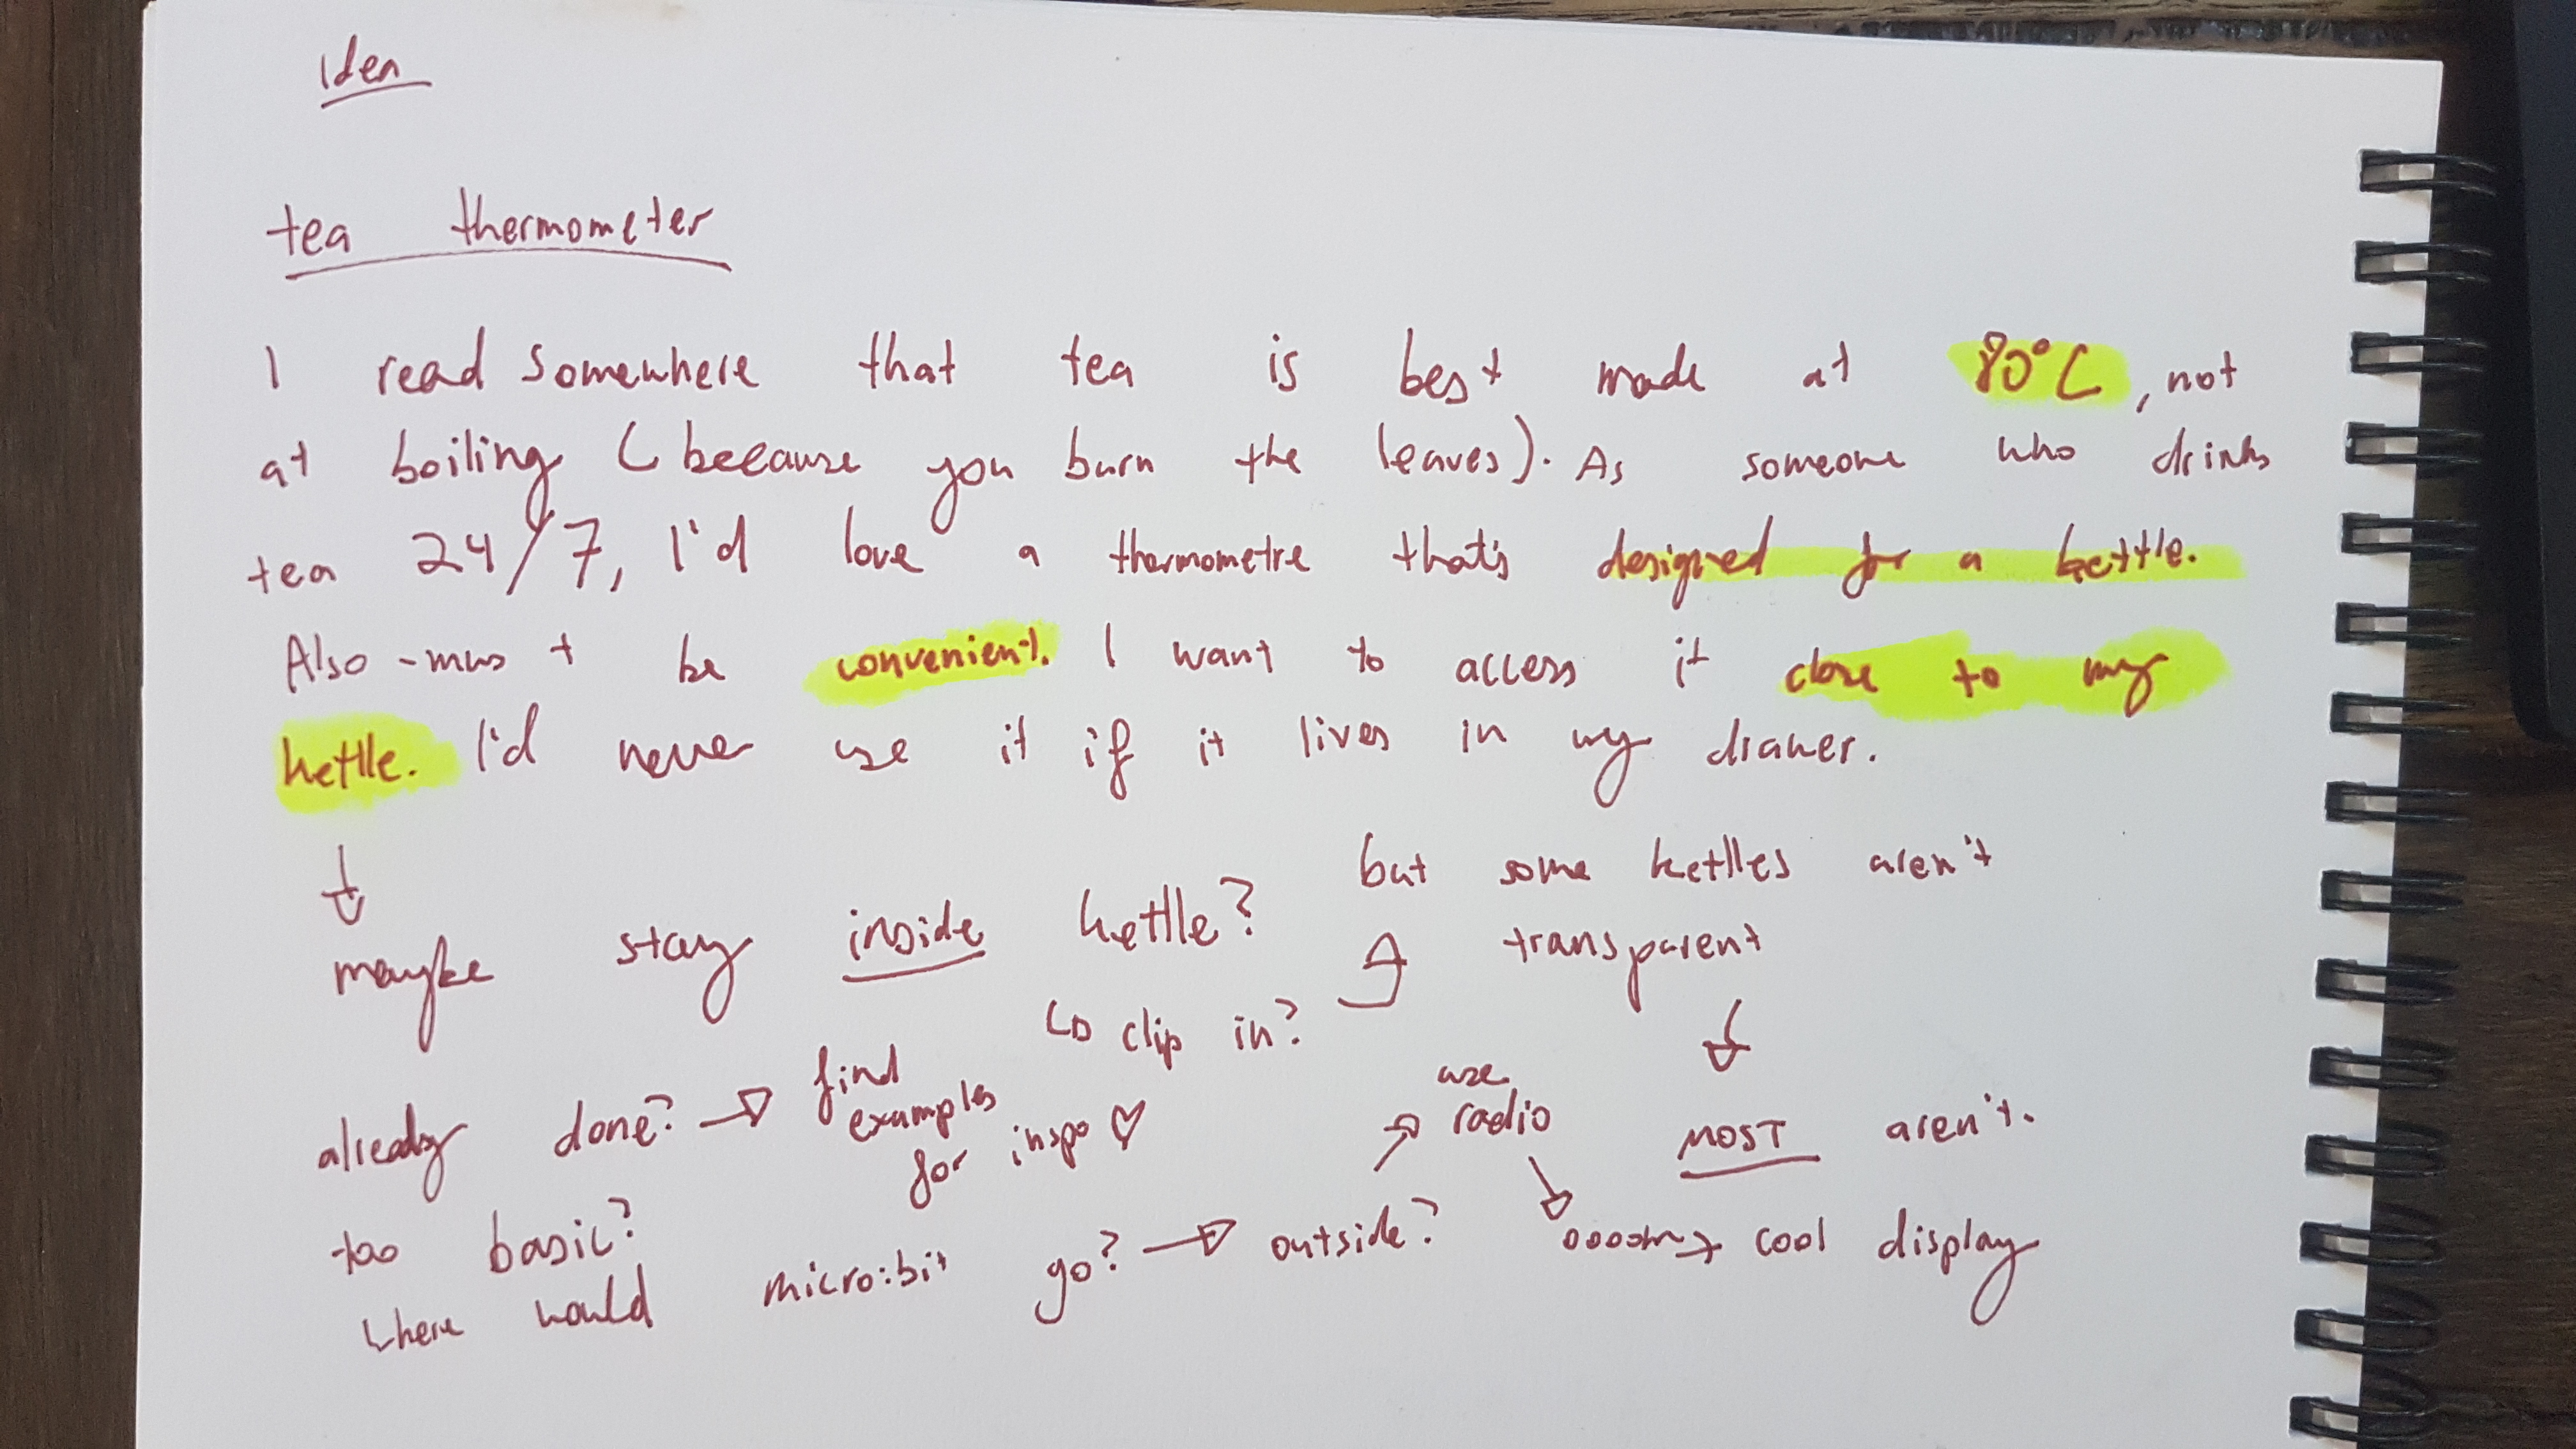 Idea
tea thermometer
I read somewhere that tea is best made at 80°C, not
at boiling (because you burn the leaves). As someone who drinks
tea 24/7, I'd love a thermometre that's designed for a kettle.
Also - must be convenient. I want to access it close to my
kettle. I'd never use it if it lives in my drawer.
↓
maybe stay inside kettle? but some kettles aren't
transparent
↳ clip in?
↓
MOST aren't.
already done? → find examples for inspo
too basic?
use radio
where would micro:bit go? → outside?
ooooh → cool display